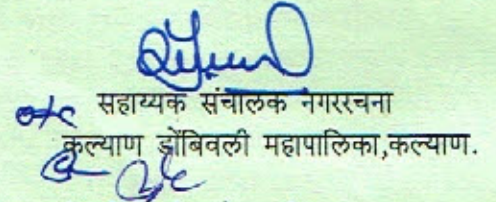 सहाय्यक संचालक नगररचना
o/c कल्याण डोंबिवली महापालिका,कल्याण.